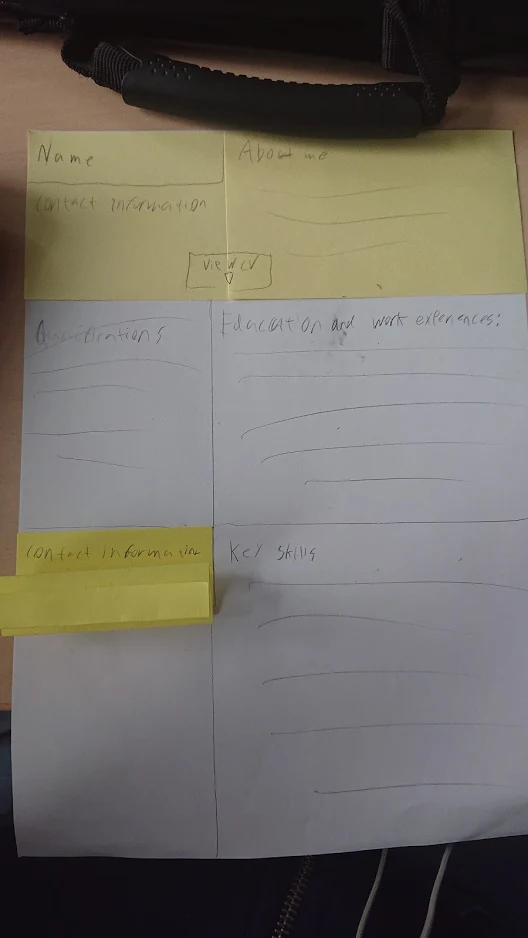 Name
About me
Contact Information
View CV
Qualifications
Education and work experiences:
Contact Information
Key skills